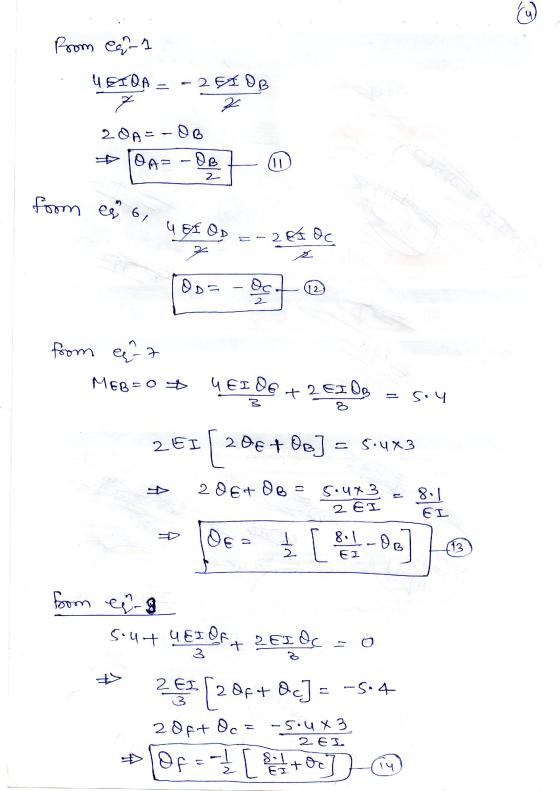 (4)
From eqⁿ-1
4EIθA/2 = -2EIθB/2
2θA = -θB
⇒ θA = -θB/2 — (11)
from eqⁿ 6,
4EIθD/2 = -2EIθC/2
θD = -θC/2 — (12)
from eqⁿ-7
MEB=0 ⇒ 4EIθE/3 + 2EIθB/3 = 5.4
2EI[2θE+θB] = 5.4×3
⇒ 2θE+θB = 5.4×3/2EI = 8.1/EI
⇒ θE = 1/2 [8.1/EI - θB] — (13)
from eqⁿ-8
5.4 + 4EIθF/3 + 2EIθC/3 = 0
⇒ 2EI/3 [2θF+θC] = -5.4
2θF+θC = -5.4×3/2EI
⇒ θF = -1/2 [8.1/EI+θC] — (14)